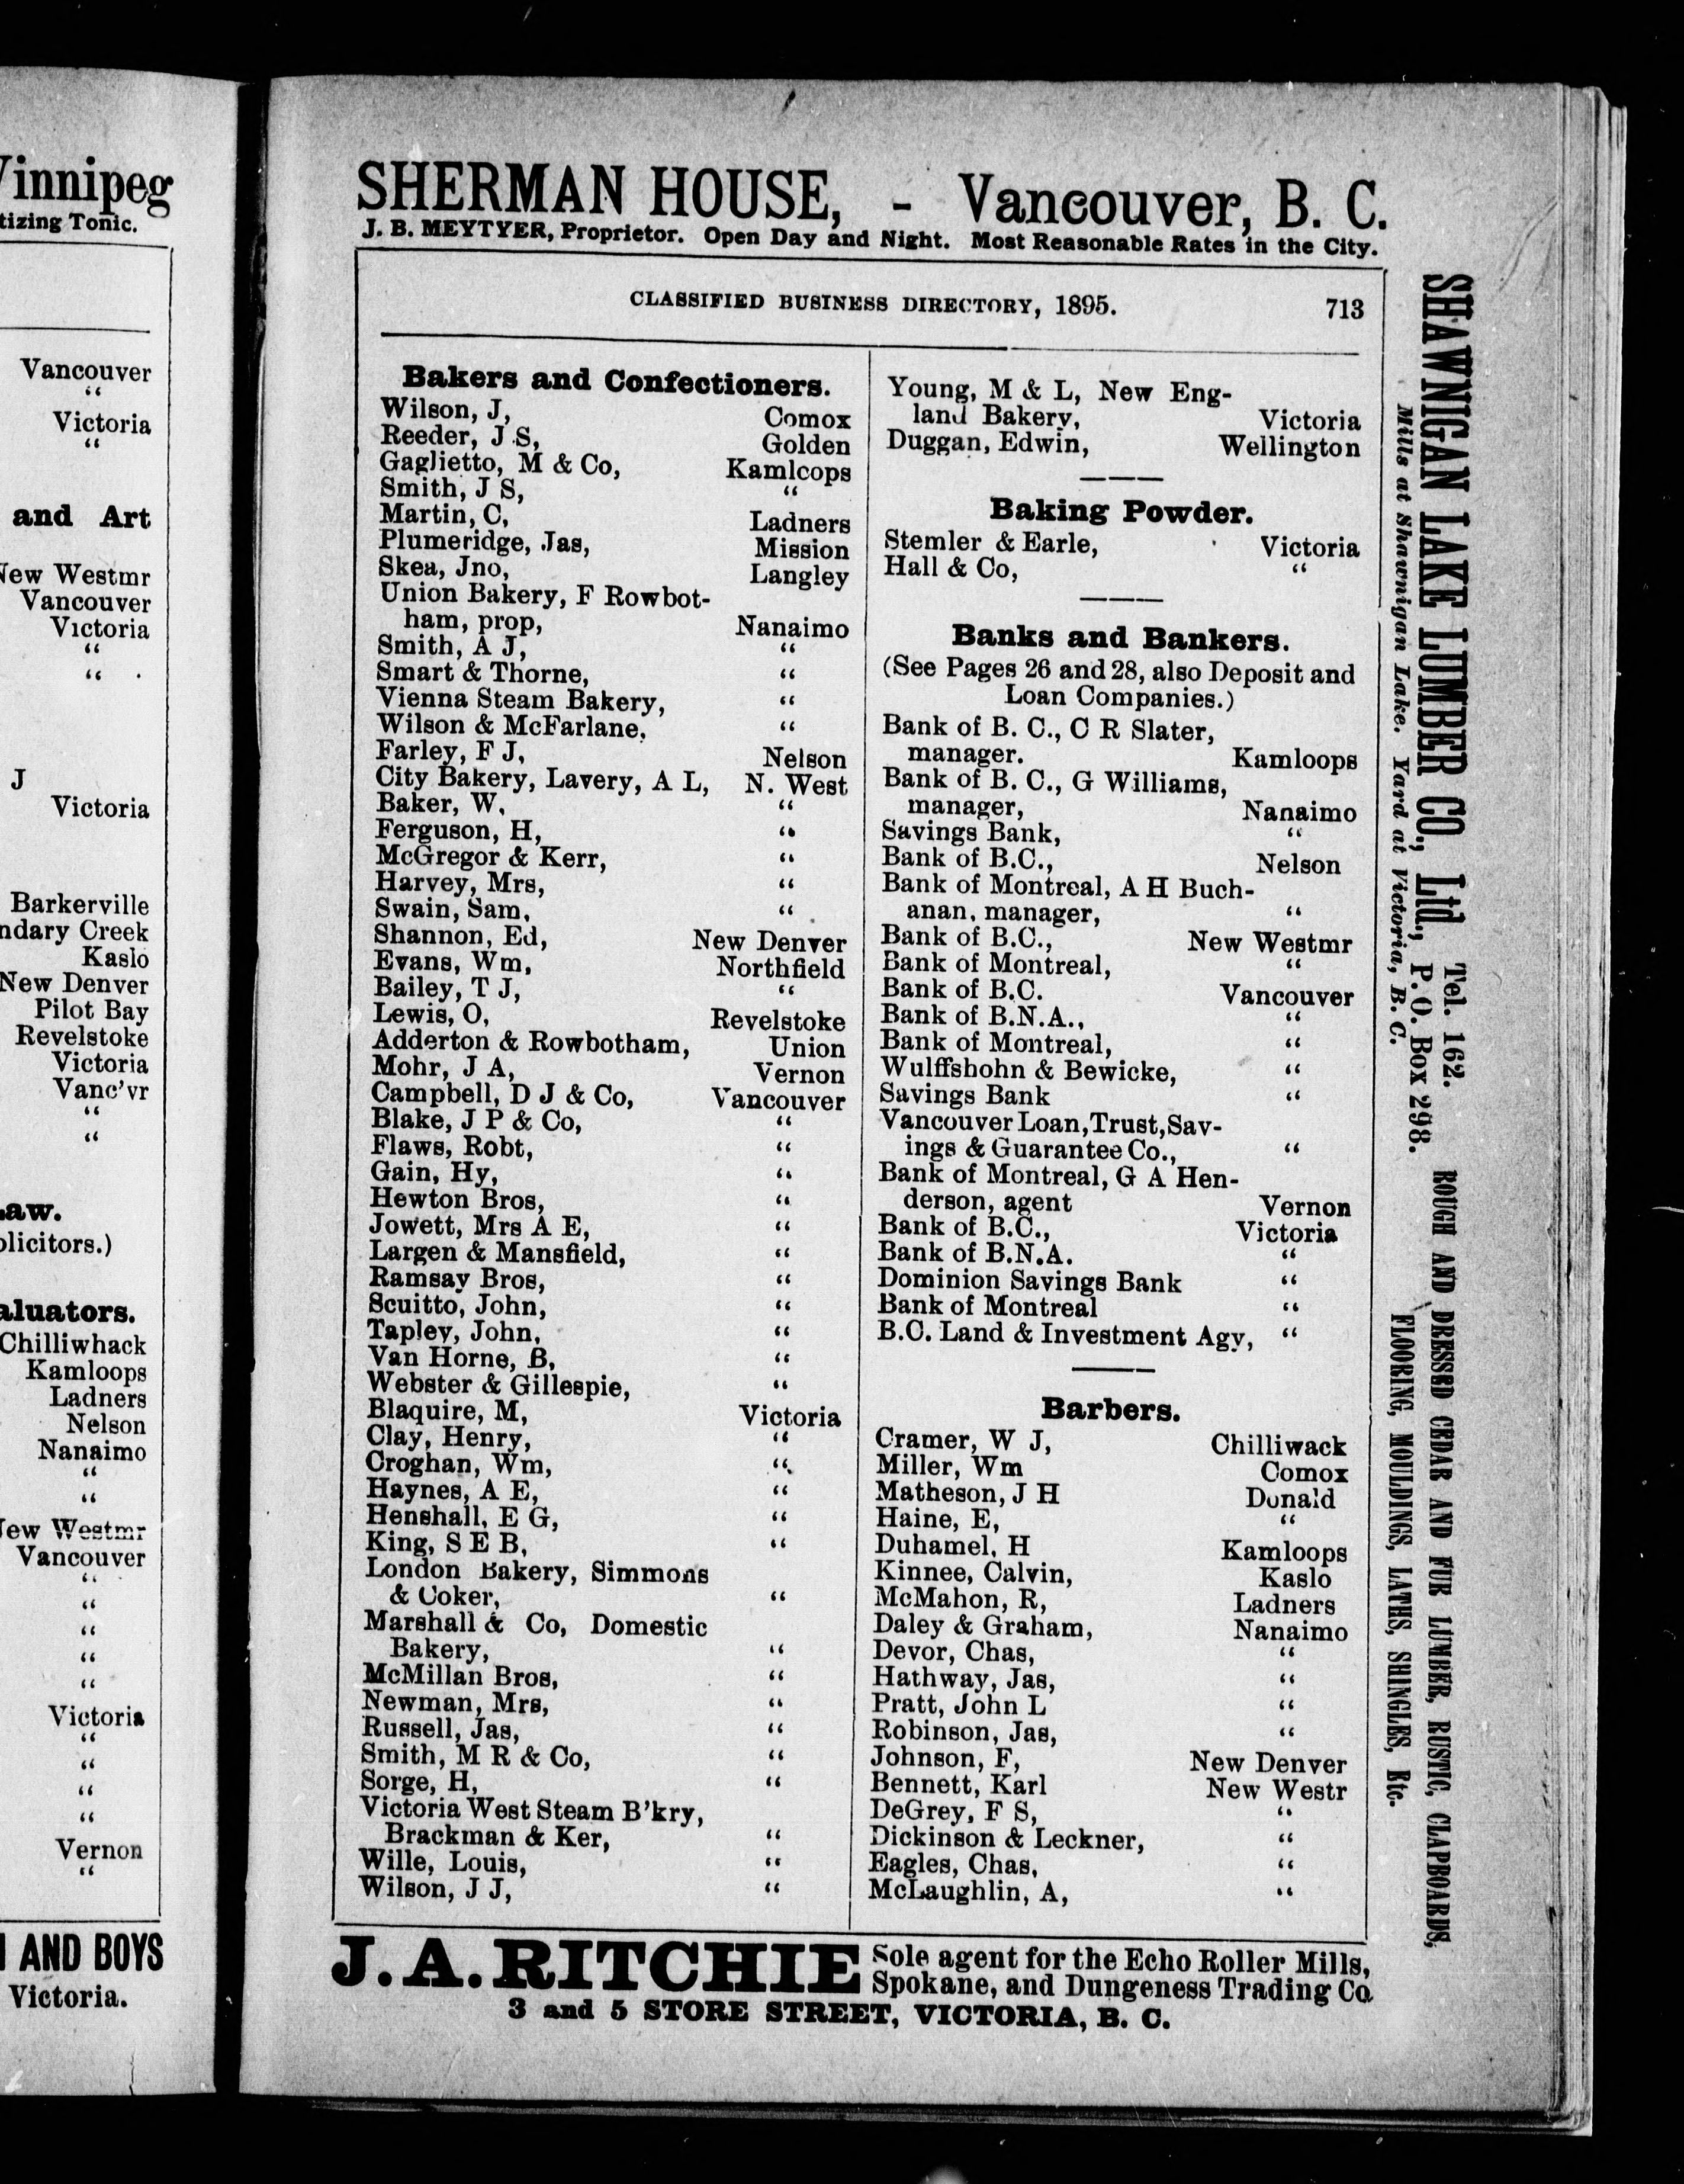 Vinnipeg
tizing Tonic.
Vancouver
“
Victoria
“
and Art
New Westmr
Vancouver
Victoria
“
“
J
Victoria
Barkerville
ndary Creek
Kaslo
New Denver
Pilot Bay
Revelstoke
Victoria
Vanc'vr
“
“
aw.
olicitors.)
aluators.
Chilliwhack
Kamloops
Ladners
Nelson
Nanaimo
“
“
New Westmr
Vancouver
“
“
“
“
“
Victoria
“
“
“
“
Vernon
“
AND BOYS
Victoria.
SHERMAN HOUSE, - Vancouver, B. C.
J. B. MEYTYER, Proprietor. Open Day and Night. Most Reasonable Rates in the City.
CLASSIFIED BUSINESS DIRECTORY, 1895. 713
Bakers and Confectioners.
Wilson, J, Comox
Reeder, J S, Golden
Gaglietto, M & Co, Kamlcops
Smith, J S, “
Martin, C, Ladners
Plumeridge, Jas, Mission
Skea, Jno, Langley
Union Bakery, F Rowbot-
ham, prop, Nanaimo
Smith, A J, “
Smart & Thorne, “
Vienna Steam Bakery, “
Wilson & McFarlane, “
Farley, F J, Nelson
City Bakery, Lavery, A L, N. West
Baker, W, “
Ferguson, H, “
McGregor & Kerr, “
Harvey, Mrs, “
Swain, Sam, “
Shannon, Ed, New Denver
Evans, Wm, Northfield
Bailey, T J, “
Lewis, O, Revelstoke
Adderton & Rowbotham, Union
Mohr, J A, Vernon
Campbell, D J & Co, Vancouver
Blake, J P & Co, “
Flaws, Robt, “
Gain, Hy, “
Hewton Bros, “
Jowett, Mrs A E, “
Largen & Mansfield, “
Ramsay Bros, “
Scuitto, John, “
Tapley, John, “
Van Horne, B, “
Webster & Gillespie, “
Blaquire, M, Victoria
Clay, Henry, “
Croghan, Wm, “
Haynes, A E, “
Henshall, E G, “
King, S E B, “
London Bakery, Simmons
& Coker, “
Marshall & Co, Domestic
Bakery, “
McMillan Bros, “
Newman, Mrs, “
Russell, Jas, “
Smith, M R & Co, “
Sorge, H, “
Victoria West Steam B'kry,
Brackman & Ker, “
Wille, Louis, “
Wilson, J J, “
Young, M & L, New Eng-
land Bakery, Victoria
Duggan, Edwin, Wellington
Baking Powder.
Stemler & Earle, Victoria
Hall & Co, “
Banks and Bankers.
(See Pages 26 and 28, also Deposit and
Loan Companies.)
Bank of B. C., C R Slater,
manager. Kamloops
Bank of B. C., G Williams,
manager, Nanaimo
Savings Bank, “
Bank of B.C., Nelson
Bank of Montreal, A H Buch-
anan, manager, “
Bank of B.C., New Westmr
Bank of Montreal, “
Bank of B.C. Vancouver
Bank of B.N.A., “
Bank of Montreal, “
Wulffshohn & Bewicke, “
Savings Bank “
Vancouver Loan, Trust, Sav-
ings & Guarantee Co., “
Bank of Montreal, G A Hen-
derson, agent Vernon
Bank of B.C., Victoria
Bank of B.N.A. “
Dominion Savings Bank “
Bank of Montreal “
B.C. Land & Investment Agy, “
Barbers.
Cramer, W J, Chilliwack
Miller, Wm Comox
Matheson, J H Donald
Haine, E, “
Duhamel, H Kamloops
Kinnee, Calvin, Kaslo
McMahon, R, Ladners
Daley & Graham, Nanaimo
Devor, Chas, “
Hathway, Jas, “
Pratt, John L “
Robinson, Jas, “
Johnson, F, New Denver
Bennett, Karl New Westr
DeGrey, F S, “
Dickinson & Leckner, “
Eagles, Chas, “
McLaughlin, A, “
J. A. RITCHIE Sole agent for the Echo Roller Mills,
Spokane, and Dungeness Trading Co
3 and 5 STORE STREET, VICTORIA, B. C.
SHAWNIGAN LAKE LUMBER CO., Ltd.,
Mills at Shawnigan Lake. Yard at Victoria, B. C.
Tel. 162.
P. O. Box 298.
ROUGH AND DRESSED CEDAR AND FUR LUMBER, RUSTIC, CLAPBOARDS,
FLOORING, MOULDINGS, LATHS, SHINGLES, Etc.